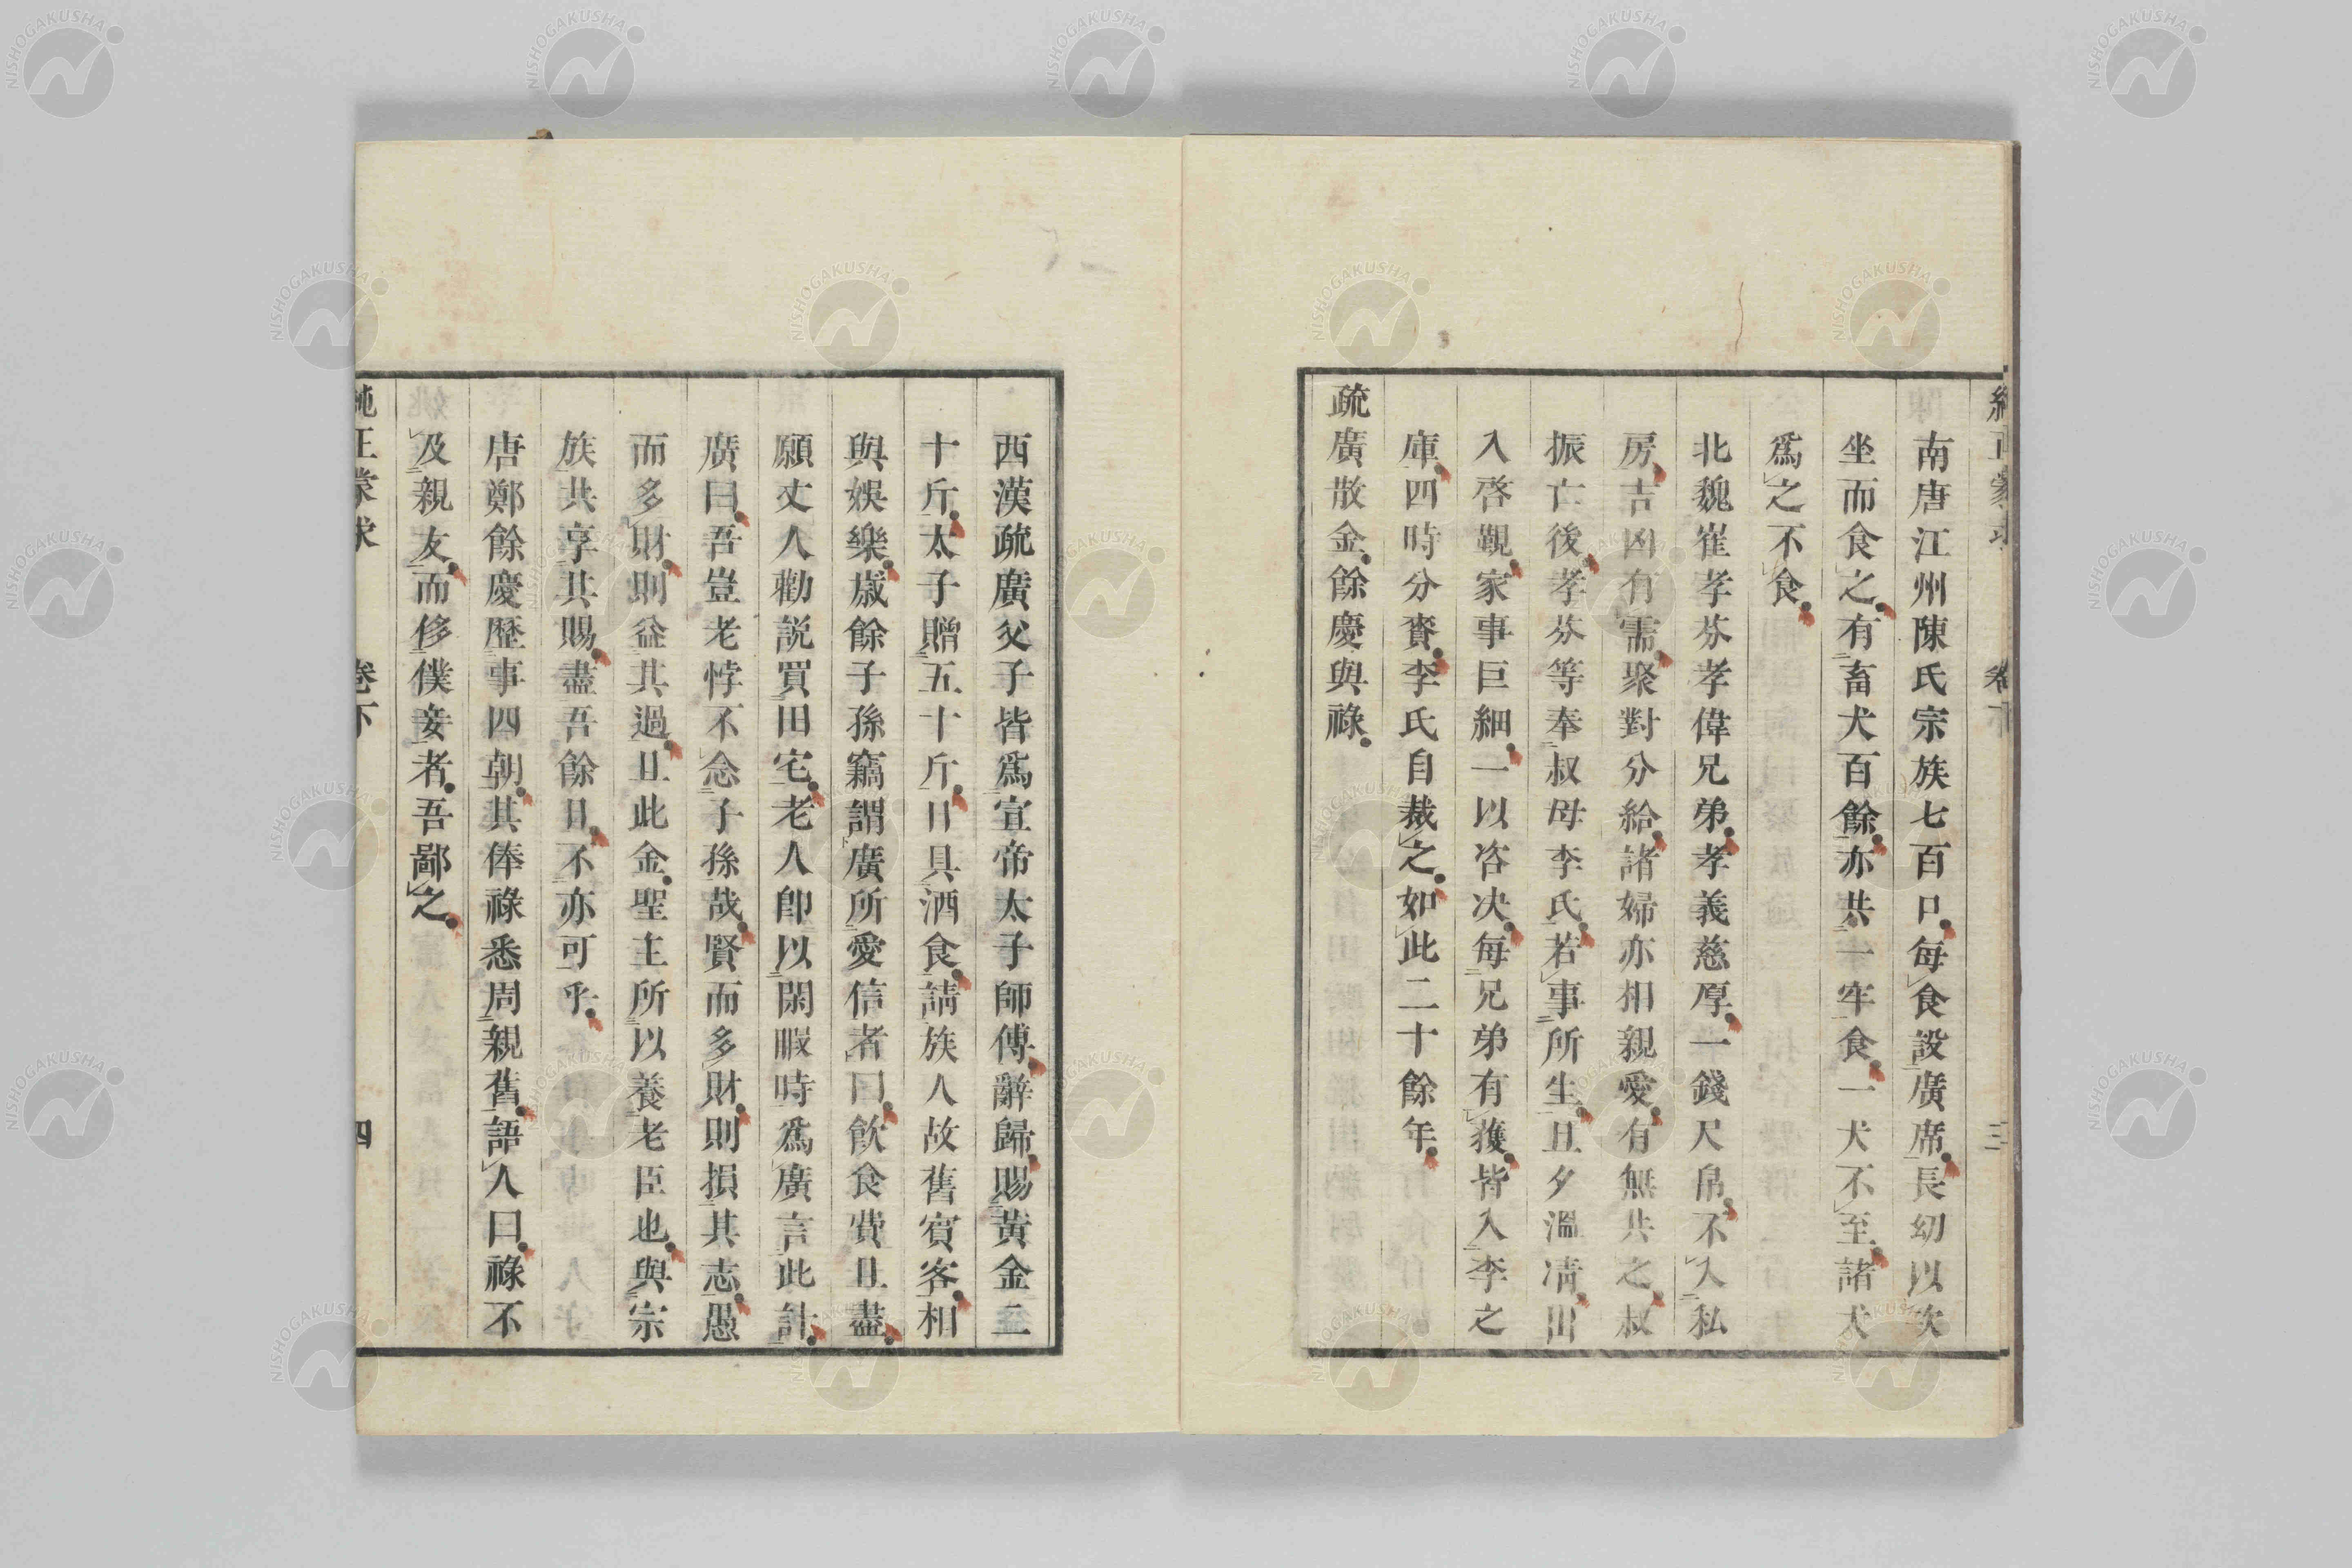 南唐江州陳氏宗族七百口每食設廣席長幼以次
坐而食之有畜犬百餘亦共一牢食一犬不至諸犬
爲之不食
北魏崔孝芬孝偉兄弟孝義慈厚一錢尺帛不入私
房吉凶有需聚對分給諸婦亦相親愛有無共之叔
振亡後孝芬等奉叔母李氏若事所生旦夕溫凊出
入啓覲家事巨細一以咨决每兄弟有獲皆入李之
庫四時分賚李氏自裁之如此二十餘年
疏廣散金餘慶與祿
西漢疏廣父子皆爲宣帝太子師傅辭歸賜黃金二
十斤太子贈五十斤日具酒食請族人故舊賓客相
與娛樂歳餘子孫竊謂廣所愛信者曰飮食費且盡
願丈人勸説買田宅老人卽以閑暇時爲廣言此計
廣曰吾豈老悖不念子孫哉賢而多財則損其志愚
而多財則益其過且此金聖主所以養老臣也與宗
族共享其賜盡吾餘日不亦可乎
唐鄭餘慶歴事四朝其俸祿悉周親舊語人曰祿不
及親友而侈僕妾者吾鄙之
純正蒙求 卷下 四
NISHOGAKUSHA